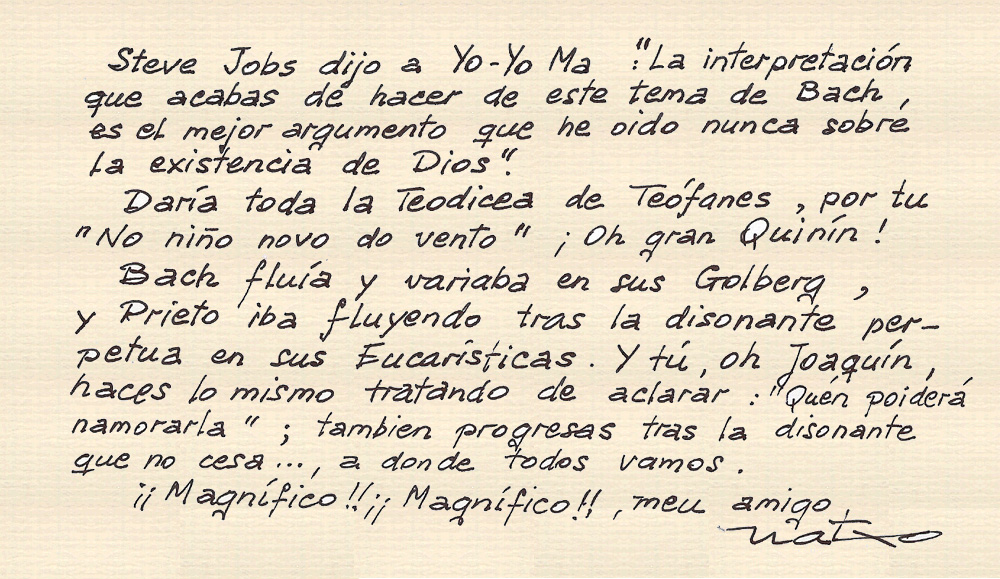 Steve Jobs dijo a Yo-Yo Ma "La interpretación
que acabas de hacer de este tema de Bach,
es el mejor argumento que he oido nunca sobre
la existencia de Dios".
Daría toda la Teodicea de Teófanes, por tu
"No niño novo do vento" ¡Oh gran Quinín!
Bach fluía y variaba en sus Golberg,
y Prieto iba fluyendo tras la disonante per-
petua en sus Eucarísticas. Y tú, oh Joaquín,
haces lo mismo tratando de aclarar: "Quén poiderá
namorarla"; tambien progresas tras la disonante
que no cesa..., a donde todos vamos.
¡¡Magnífico!! ¡¡Magnífico!!, meu amigo,
Natxo